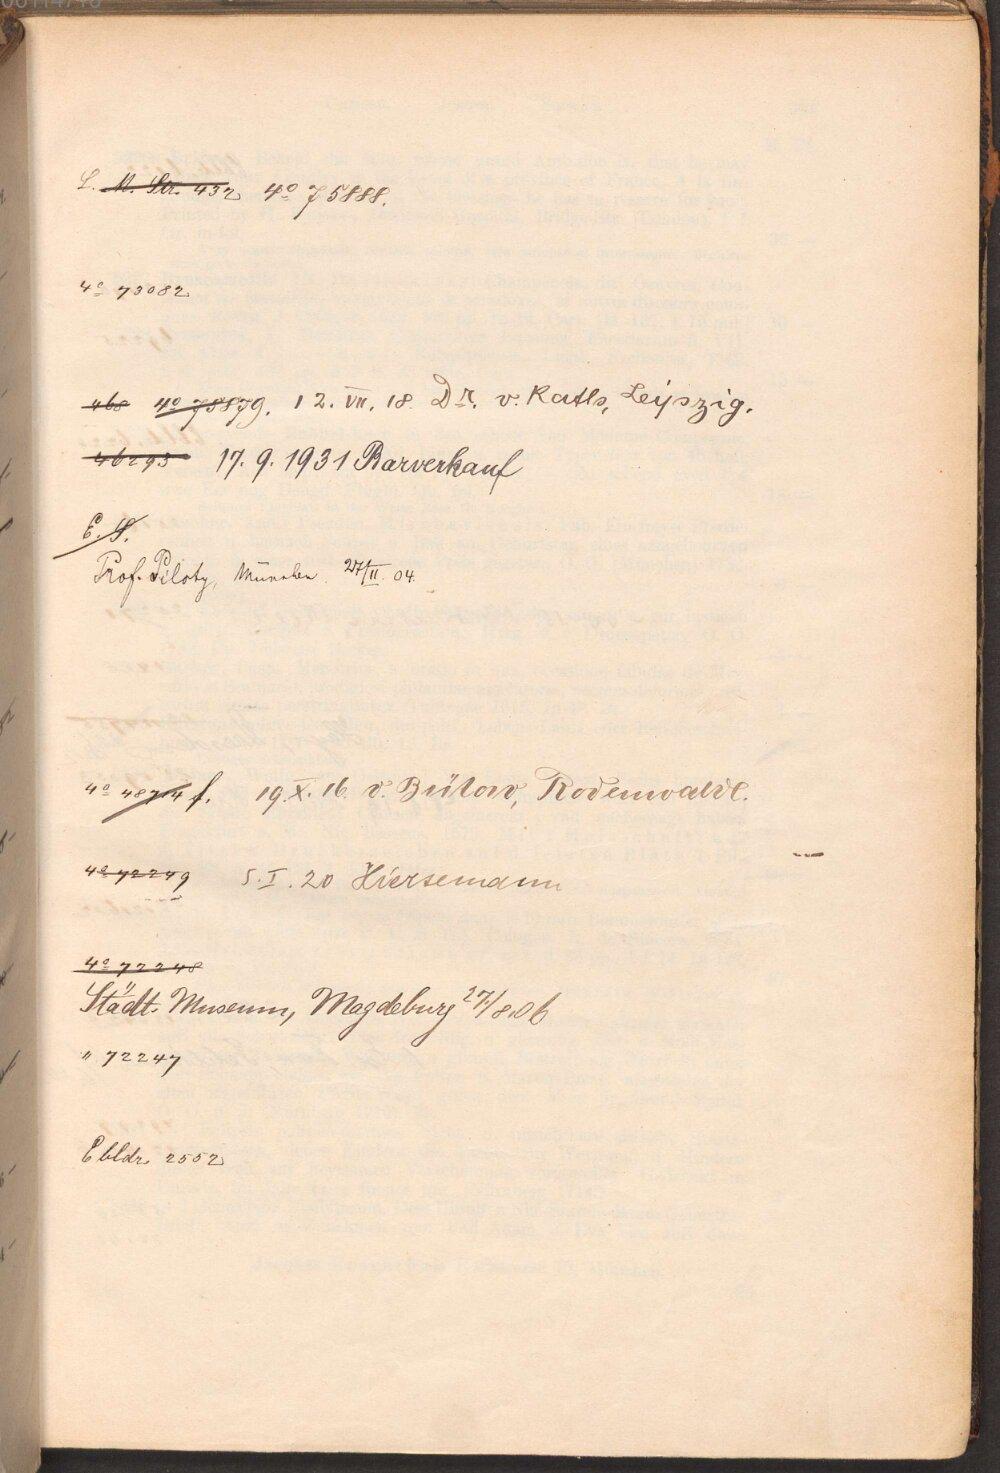 L. M. Str. 432 4º 75888.
4º 73082
468 4º 75879. 12. VII. 18. Dr. v. Rath, Leipzig.
46293 17. 9. 1931 Barverkauf
E. S.
Prof. Piloty, München. 27/II. 04.
4º 48714 f. 19. X. 16. v. Bülow, Rodenwalde.
4º 72249 5. I. 20 Hiersemann
4º 72248
Städt. Museum, Magdeburg 27/8.06
" 72247
Ebldr. 2552